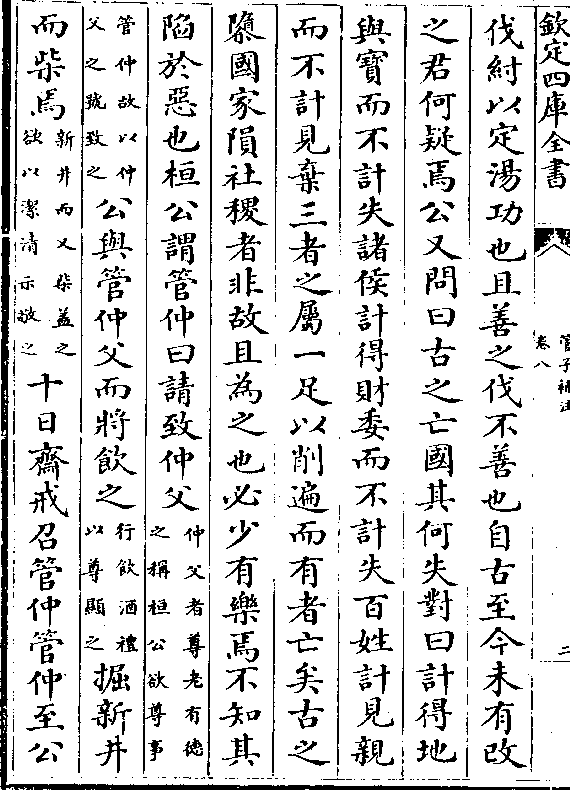 欽定四庫全書
管子補注
卷八
二
伐紂以定湯功也且善之伐不善也自古至今未有改
之君何疑焉公又問曰古之亡國其何失對曰計得地
與寶而不計失諸侯計得財委而不計失百姓計見親
而不計見棄三者之屬一足以削遍而有者亡矣古之
隳國家隕社稷者非故且為之也必少有樂焉不知其
陷於惡也桓公謂管仲曰請致仲父
仲父者尊老有徳
之稱桓公欲尊事
管仲故以仲
父之號致之
公與管仲父而將飲之
行飲酒禮
以尊顯之
掘新井
而柴焉
新井而又柴蓋之
欲以潔清示敬之
十日齋戒召管仲管仲至公